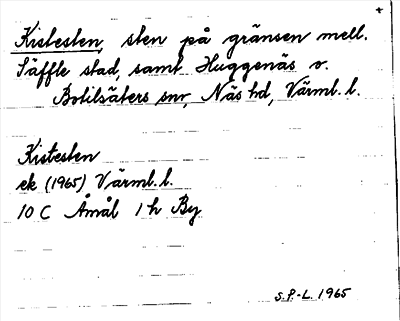 Kistesten, sten på gränsen mell.
Säffle stad, samt Huggenäs o.
Botilsäters snr, Näs hd, Värml. l.
Kistesten
ek (1965) Värml. l.
10 C Åmål 1 h By
S.P.-L. 1965